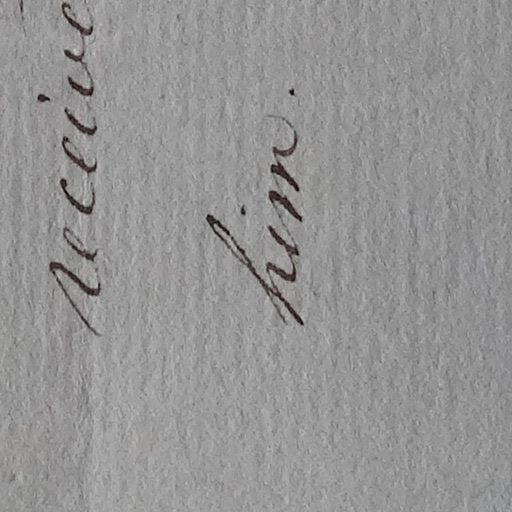 receive
him.